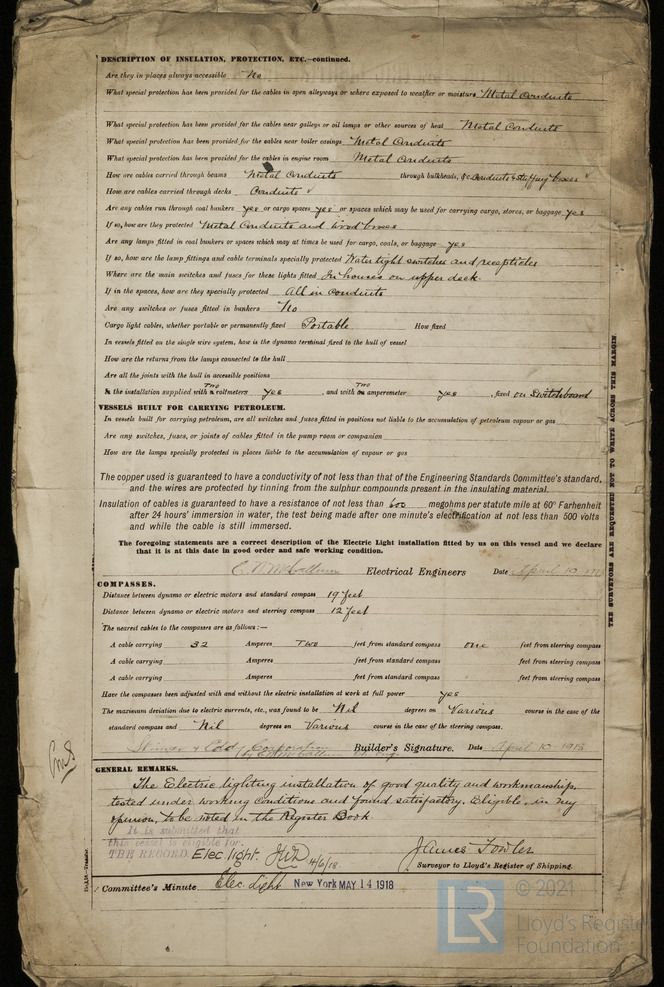 DESCRIPTION OF INSULATION, PROTECTION, ETC.—continued.
Are they in places always accessible No
What special protection has been provided for the cables in open alleyways or where exposed to weather or moisture Metal Conduits
What special protection has been provided for the cables near galleys or oil lamps or other sources of heat Metal Conduits
What special protection has been provided for the cables near boiler casings Metal Conduits
What special protection has been provided for the cables in engine room Metal Conduits
How are cables carried through beams Metal Conduits through bulkheads, &c. Conduits & stuffing boxes
How are cables carried through decks Conduits
Are any cables run through coal bunkers yes or cargo spaces yes or spaces which may be used for carrying cargo, stores, or baggage yes
If so, how are they protected Metal Conduits and wood boxes
Are any lamps fitted in coal bunkers or spaces which may at times be used for cargo, coals, or baggage yes
If so, how are the lamp fittings and cable terminals specially protected Water tight switches and recepticles
Where are the main switches and fuses for these lights fitted In houses on upper deck
If in the spaces, how are they specially protected All in conduits
Are any switches or fuses fitted in bunkers No
Cargo light cables, whether portable or permanently fixed Portable How fixed
In vessels fitted on the single wire system, how is the dynamo terminal fixed to the hull of vessel
How are the returns from the lamps connected to the hull
Are all the joints with the hull in accessible positions
Is the installation supplied with Two voltmeters yes, and with Two amperemeter yes, fixed on Switchboard
VESSELS BUILT FOR CARRYING PETROLEUM.
In vessels built for carrying petroleum, are all switches and fuses fitted in positions not liable to the accumulation of petroleum vapour or gas
Are any switches, fuses, or joints of cables fitted in the pump room or companion
How are the lamps specially protected in places liable to the accumulation of vapour or gas
The copper used is guaranteed to have a conductivity of not less than that of the Engineering Standards Committee's standard,
and the wires are protected by tinning from the sulphur compounds present in the insulating material.
Insulation of cables is guaranteed to have a resistance of not less than 600 megohms per statute mile at 60° Farhenheit
after 24 hours' immersion in water, the test being made after one minute's electrification at not less than 500 volts
and while the cable is still immersed.
The foregoing statements are a correct description of the Electric Light installation fitted by us on this vessel and we declare
that it is at this date in good order and safe working condition.
Electrical Engineers Date April 10
COMPASSES.
Distance between dynamo or electric motors and standard compass 19 feet
Distance between dynamo or electric motors and steering compass 12 feet
The nearest cables to the compasses are as follows:—
A cable carrying 32 Amperes Two feet from standard compass One feet from steering compass
A cable carrying Amperes feet from standard compass feet from steering compass
A cable carrying Amperes feet from standard compass feet from steering compass
Have the compasses been adjusted with and without the electric installation at work at full power yes
The maximum deviation due to electric currents, etc., was found to be Nil degrees on Various course in the case of the
standard compass and Nil degrees on Various course in the case of the steering compass.
Skinner & Eddy Corporation Builder's Signature. Date April 10 1918
GENERAL REMARKS.
The Electric lighting installation of good quality and workmanship,
tested under working conditions and found satisfactory. Eligible, in my
opinion, to be noted in the Register Book
It is submitted that
this vessel is eligible for
THE RECORD. Elec light. 4/6/18
James Fowler
Surveyor to Lloyd's Register of Shipping.
Committee's Minute Elec. Light New York MAY 14 1918
THE SURVEYORS ARE REQUESTED NOT TO WRITE ACROSS THIS MARGIN.
LR
© 2021
Lloyd's Register
Foundation